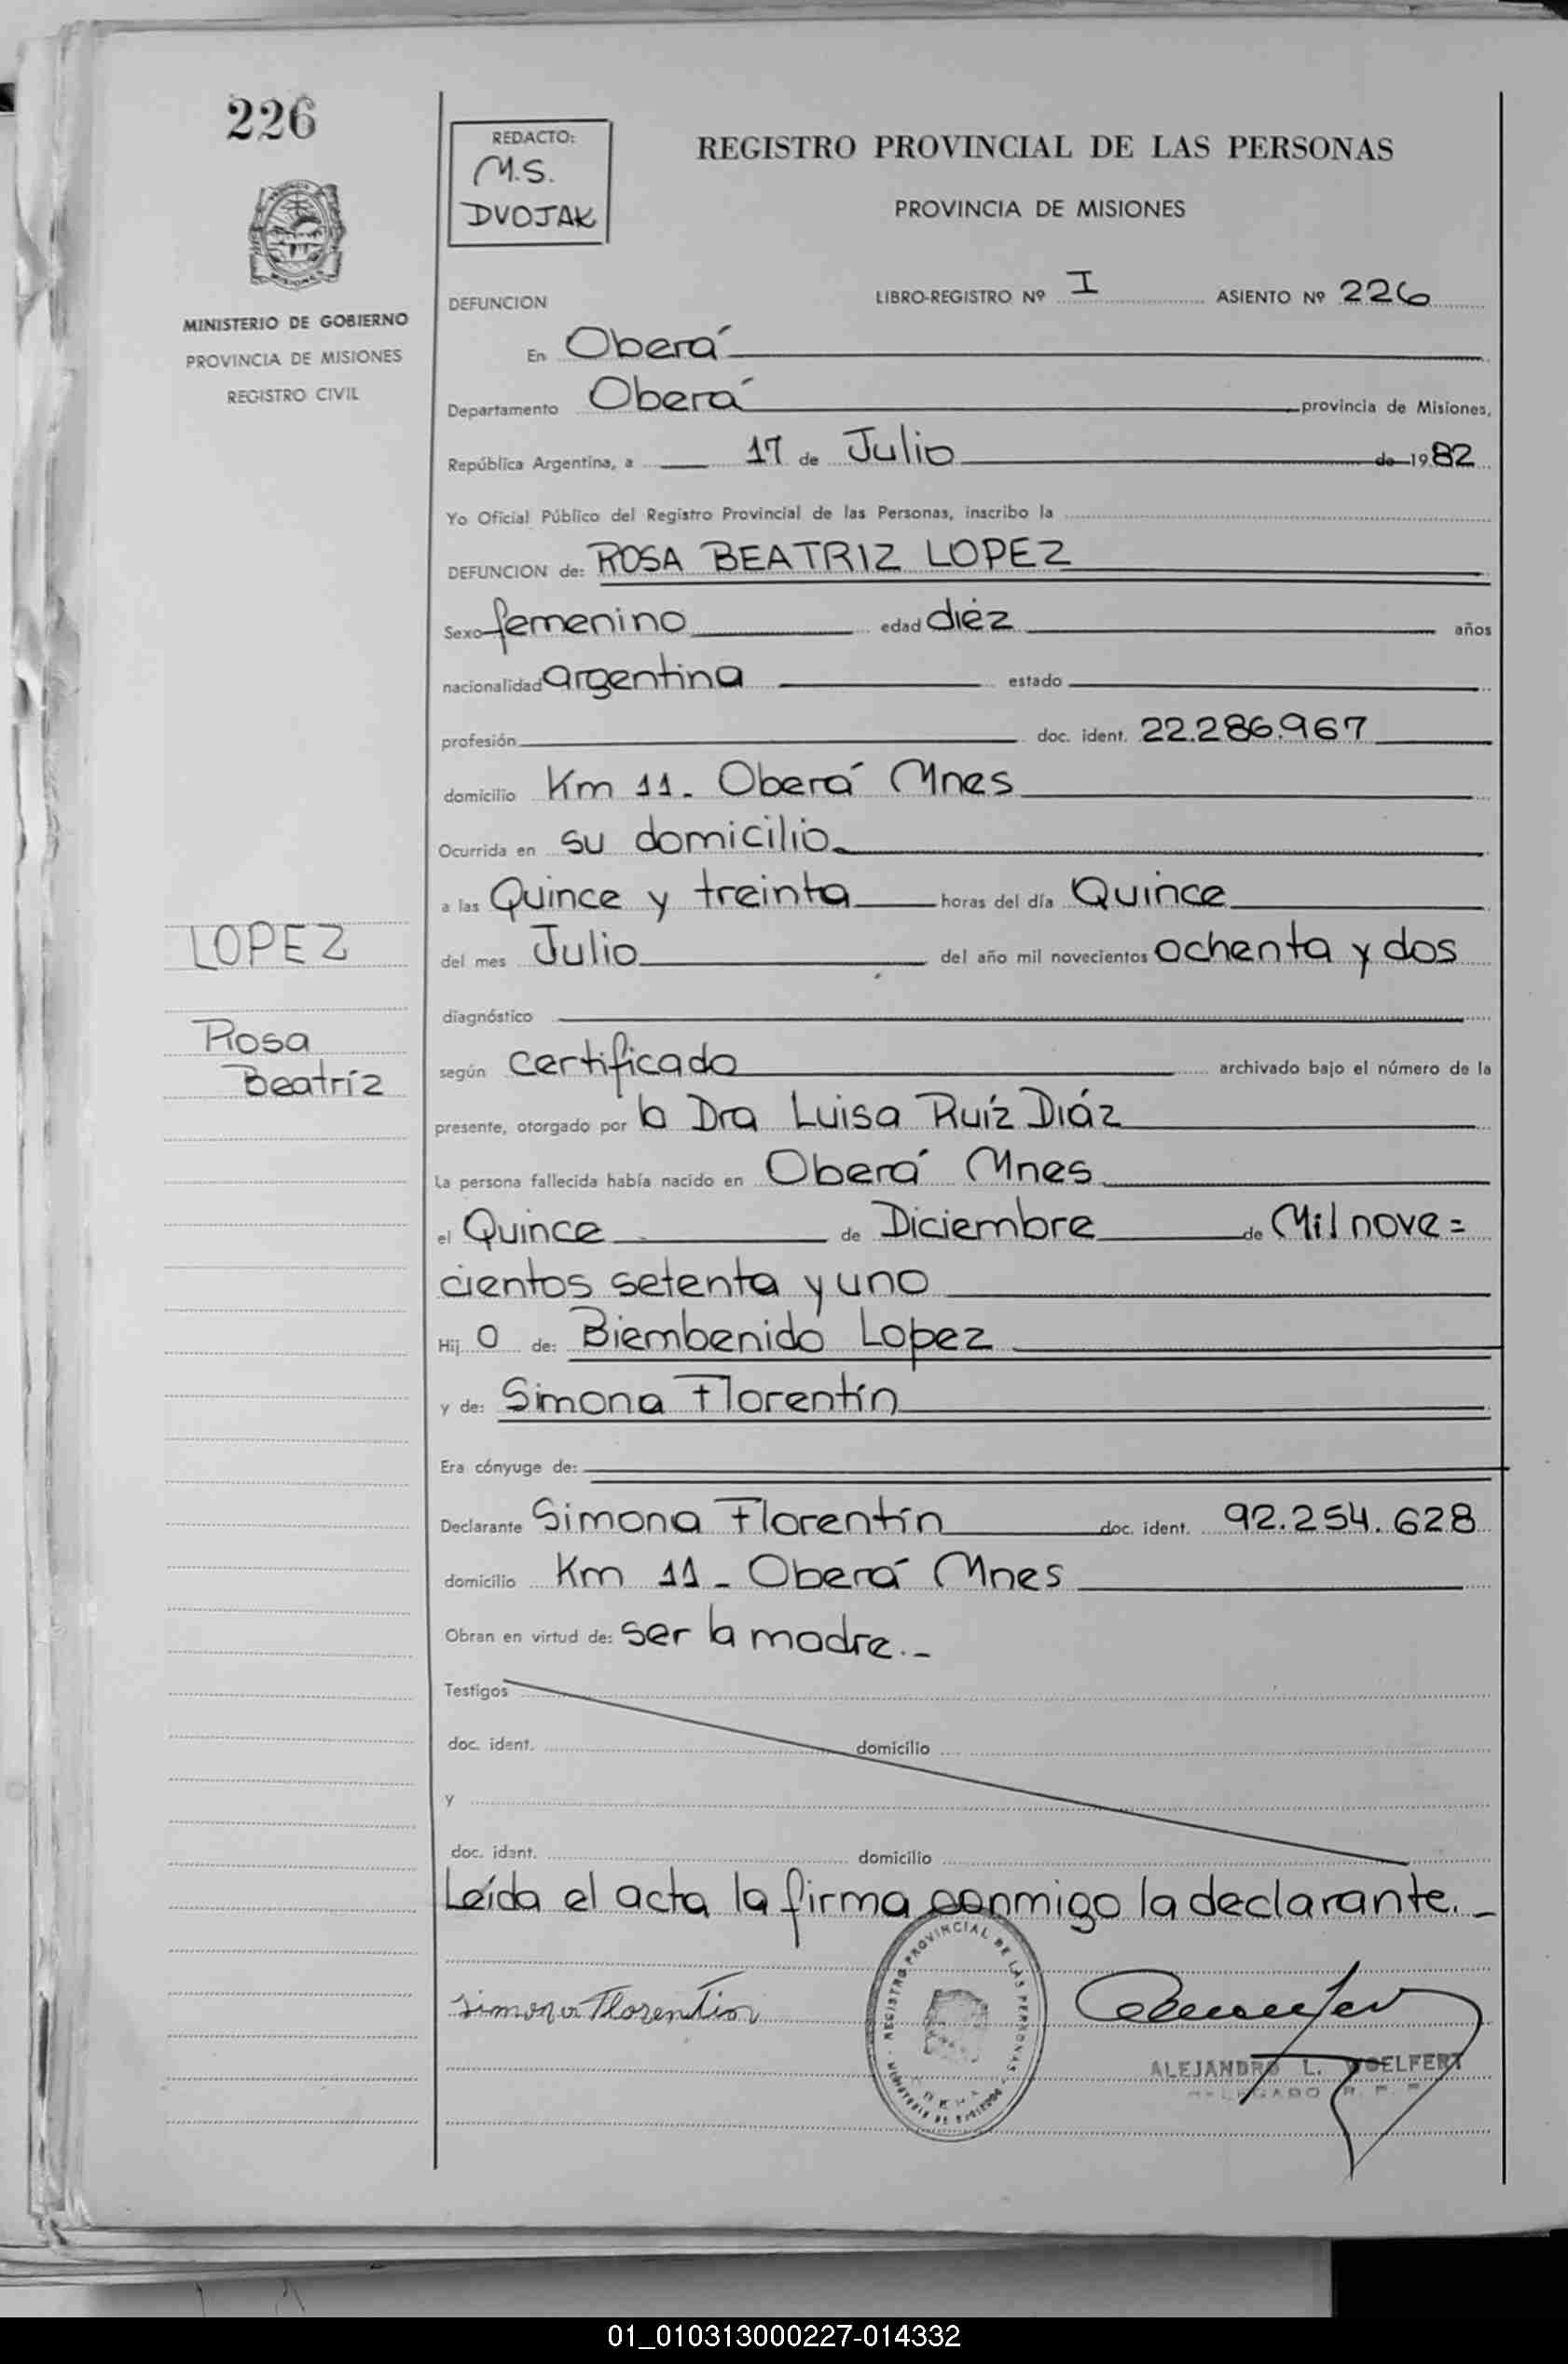 226
REDACTO:
M.S.
DVOJAK
REGISTRO PROVINCIAL DE LAS PERSONAS
PROVINCIA DE MISIONES
MINISTERIO DE GOBIERNO
PROVINCIA DE MISIONES
REGISTRO CIVIL
DEFUNCION LIBRO-REGISTRO Nº I ASIENTO Nº 226
En Oberá
Departamento Oberá provincia de Misiones,
República Argentina, a 17 de Julio de 1982
Yo Oficial Público del Registro Provincial de las Personas, inscribo la
DEFUNCION de: ROSA BEATRIZ LOPEZ
Sexo femenino edad diéz años
nacionalidad argentina estado
profesión doc. ident. 22.286.967
domicilio Km 11. Oberá Mnes
Ocurrida en su domicilio.
a las Quince y treinta horas del día Quince
del mes Julio del año mil novecientos ochenta y dos
diagnóstico
según certificado archivado bajo el número de la
presente, otorgado por la Dra Luisa Ruíz Diáz
La persona fallecida había nacido en Oberá Mnes
el Quince de Diciembre de Mil nove=
cientos setenta y uno
Hij o de: Biembenido Lopez
y de: Simona Florentín
Era cónyuge de:
Declarante Simona Florentín doc. ident. 92.254.628
domicilio Km 11 - Oberá Mnes
Obran en virtud de: ser la madre.-
Testigos
doc. ident. domicilio
y
doc. ident. domicilio
Leída el acta la firma conmigo la declarante.-
LOPEZ
Rosa
Beatríz
Simona Florentin
REGISTRO PROVINCIAL DE LAS PERSONAS
ALEJANDRO L. WOELFERT
01_010313000227-014332